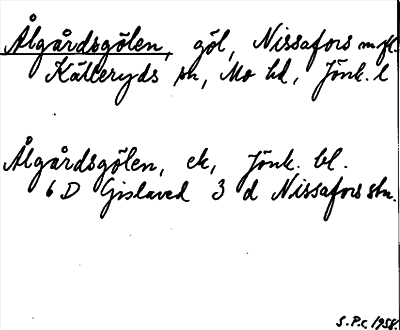 Ålgårdsgölen, göl, Nissafors mfl.
Källeryds sn, Mo hd, Jönk. l
Ålgårdsgölen, ek, Jönk. bl.
6 D Gislaved 3 d Nissafors stn.
S.P.c 1958.